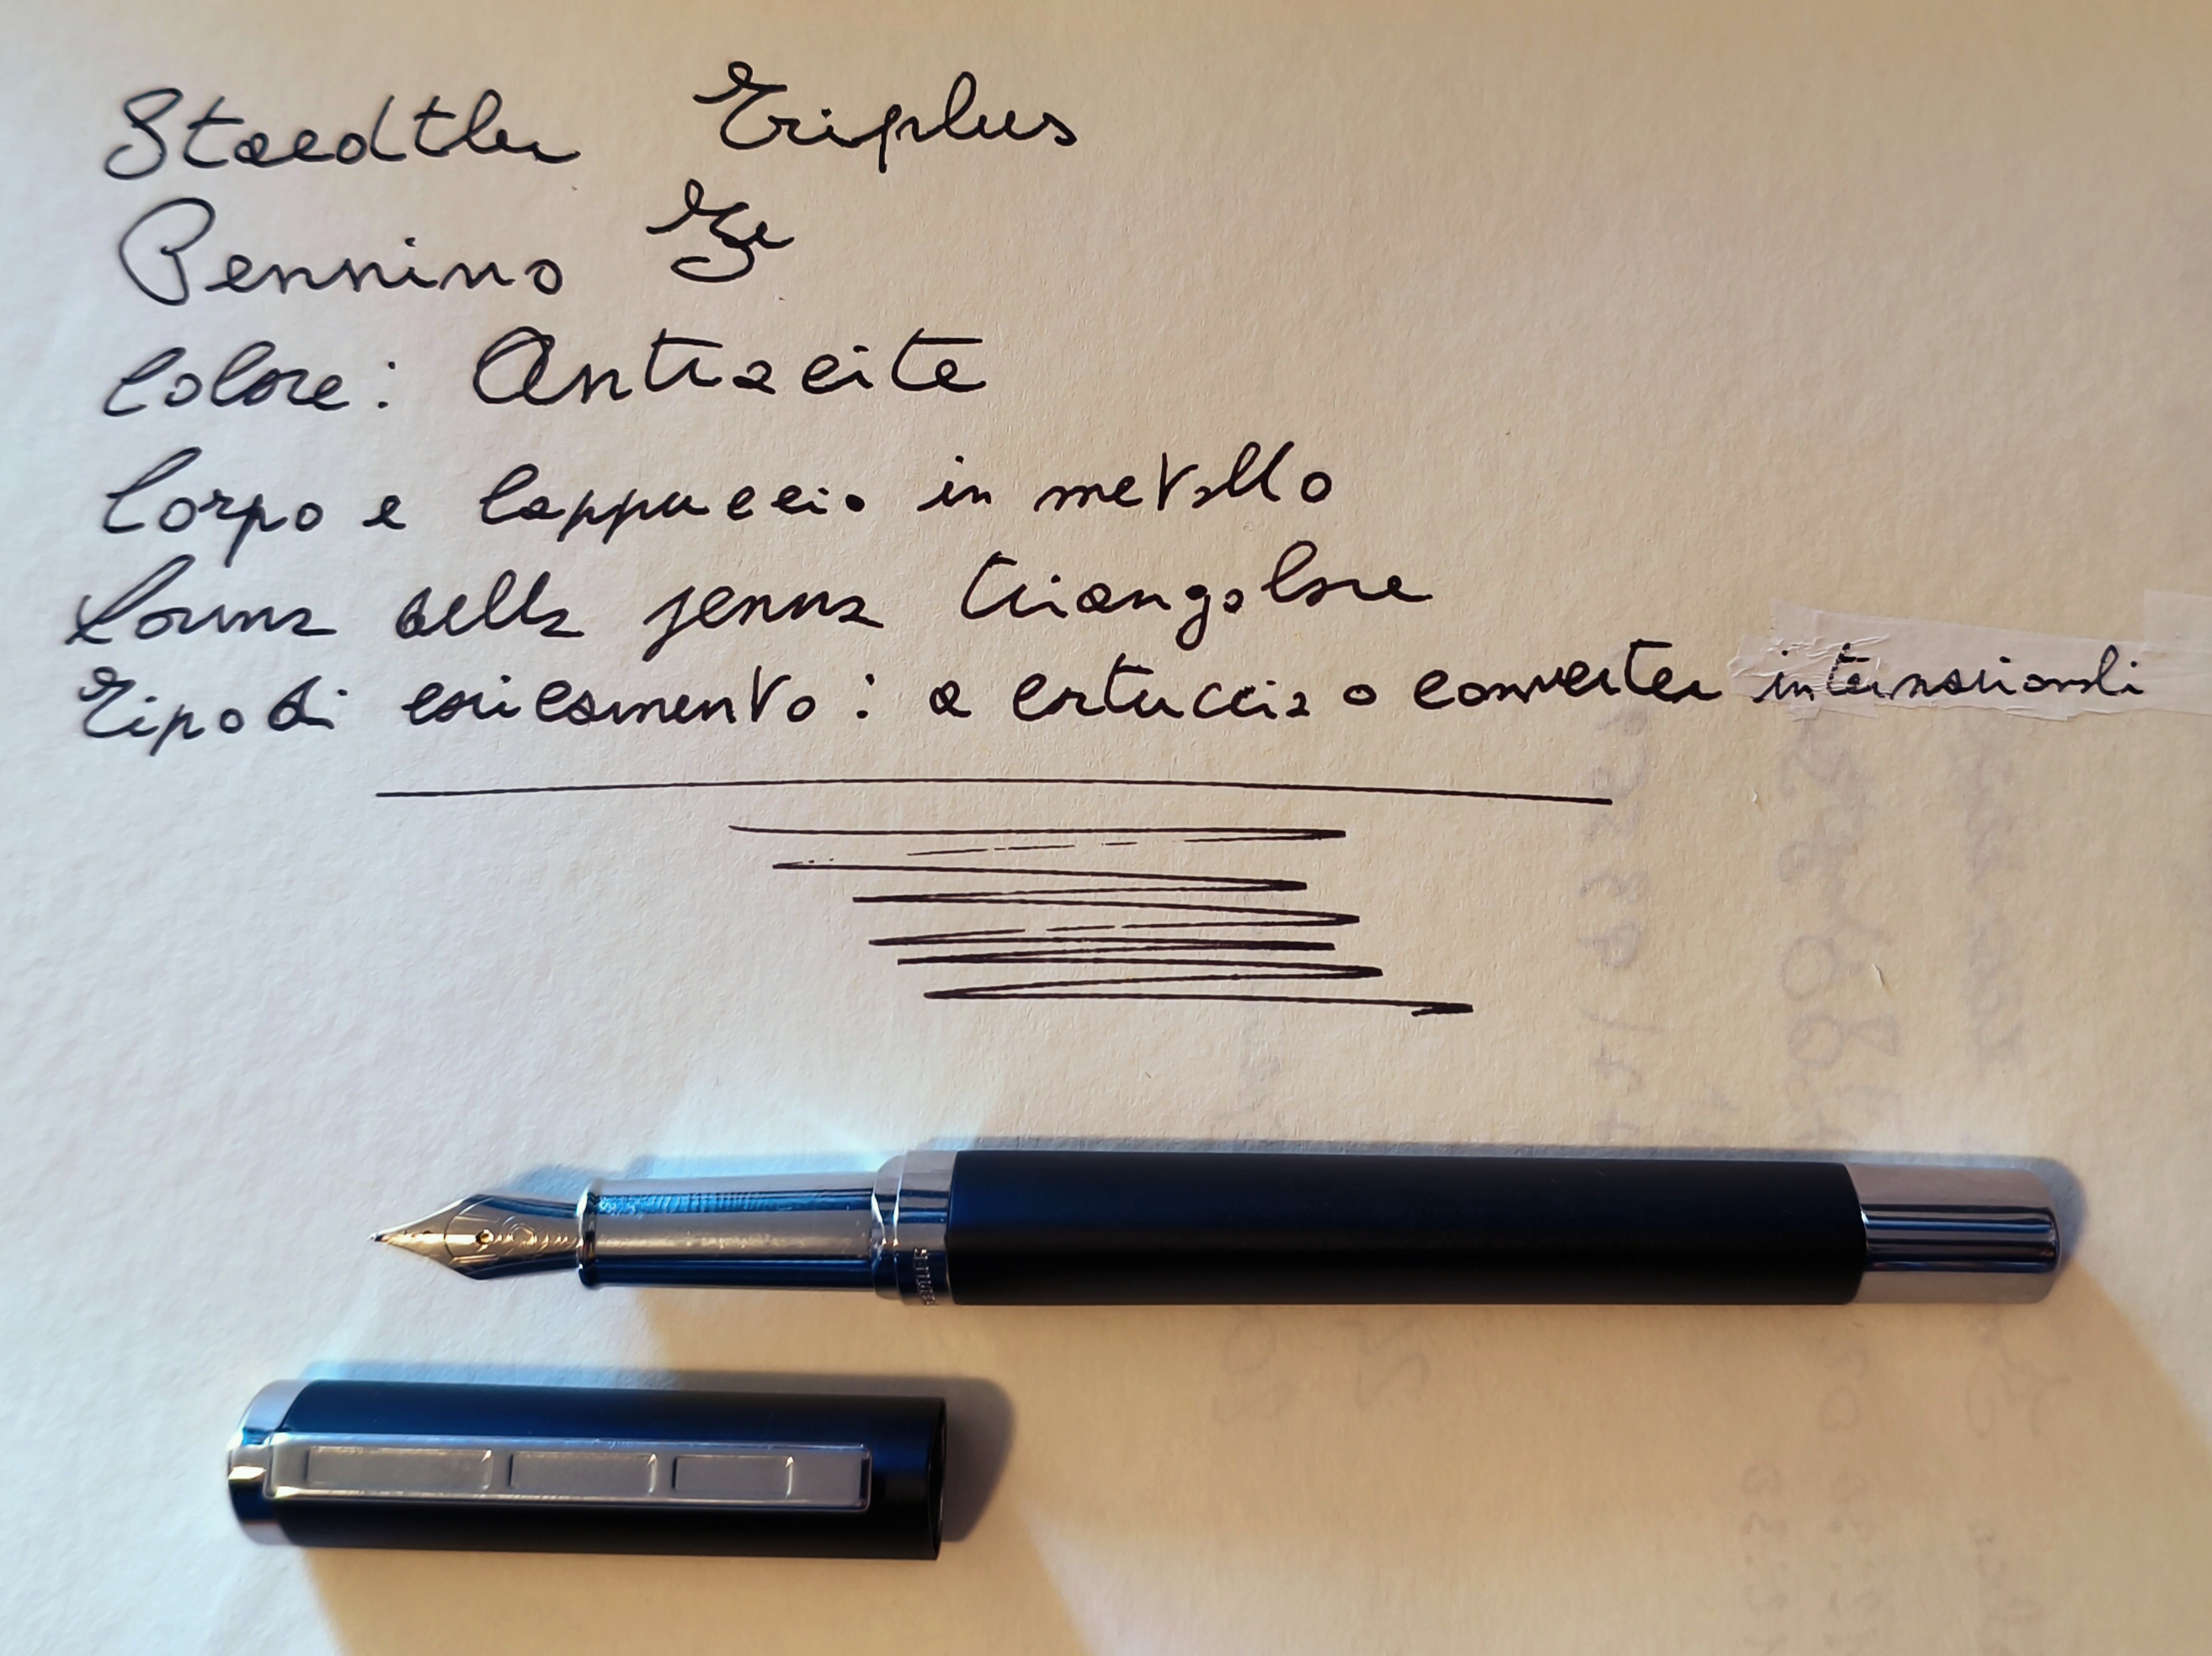 Staedtler Triplus
Pennino
Colore: Antracite
Corpo e Cappuccio in metallo
Forma della penna triangolare
Tipo di caricamento: a cartuccia o converter internazionali
STAEDTLER